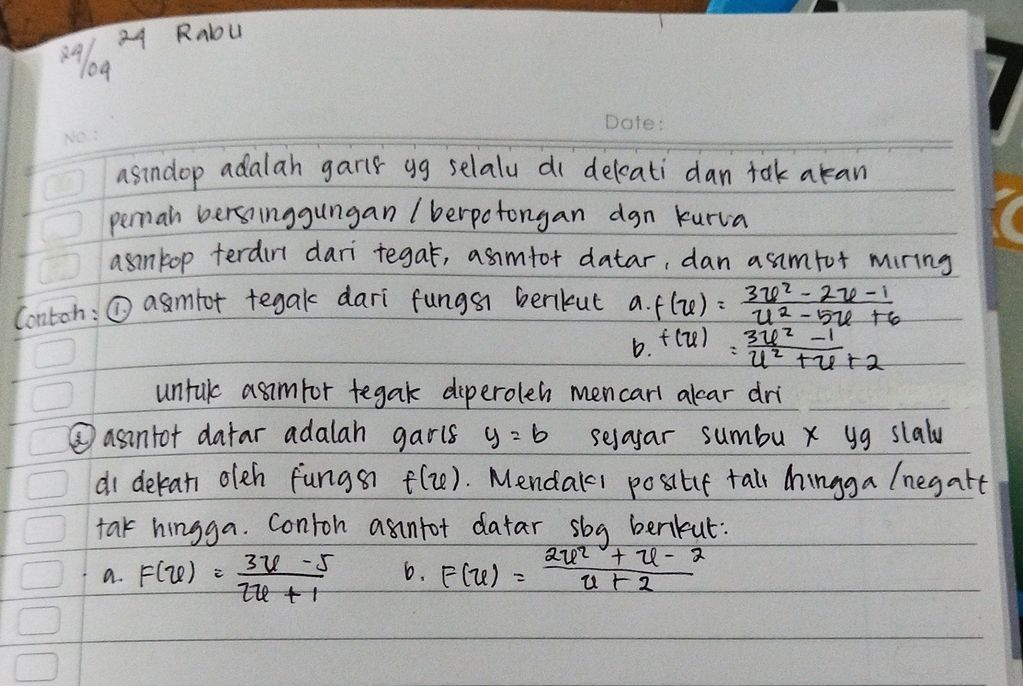 24/09 24 Rabu
No.: Date:
asindop adalah garis yg selalu di dekati dan tak akan
pernah bersinggungan / berpotongan dgn kurva
asinkop terdiri dari tegak, asimtot datar, dan asimtot miring
Contoh: ① asimtot tegak dari fungsi berikut a. f(x) = 3x² - 2x - 1 / x² - 5x + 6
b. f(x) = 3x² - 1 / x² + x + 2
untuk asimtot tegak diperoleh mencari akar dri
② asintot datar adalah garis y = b sejajar sumbu x yg slalu
di dekati oleh fungsi f(x). Mendaki positif tak hingga / negatt
tak hingga. Contoh asintot datar sbg berikut:
a. F(x) = 3x - 5 / 2x + 1 b. F(x) = 2x² + x - 2 / x + 2